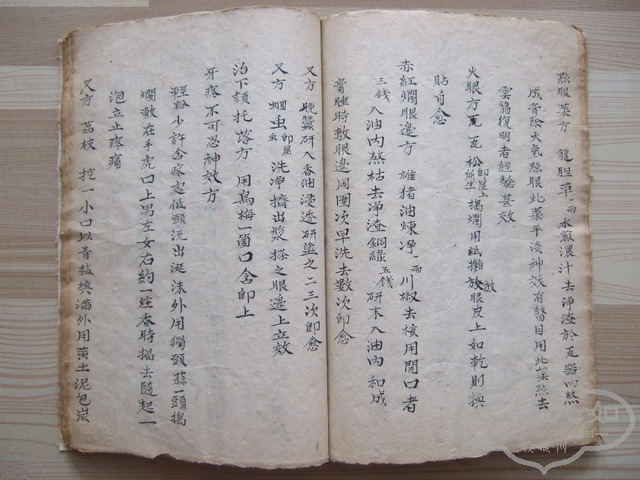 點眼藥方 龍胆草一兩水煎濃汁去净渣於瓦器內熬
成膏除火氣點眼此藥平淡神效有瞽目用此藥熬去
雲翳復明者經驗甚效
火眼方 瓦松即屋上所生搗爛用紙攤放眼皮上如乾則換
貼自愈
赤紅爛眼邊方 雄猪油煉净一兩川椒去核用開口者
三錢 入油內熬枯去净渣銅綠五錢 研末入油內和成
膏睡時敷眼邊周圍次早洗去數次即愈
又方 晚蠶研入香油浸透研塗之二三次即愈
又方 烟虫即屎虫洗净擠出漿搽之眼邊上立效
治下頦托落方 用烏梅一箇口含即上
牙疼不可忍神效方
輕粉少許含家處低頭流出涎沫外用獨頭蒜一頭搗
爛敷在手虎口上男左女右約一炷香時揭去隨起一
泡立止疼痛
又方 荔枝 挖一小口以青鹽填滿外用黃土泥包炭